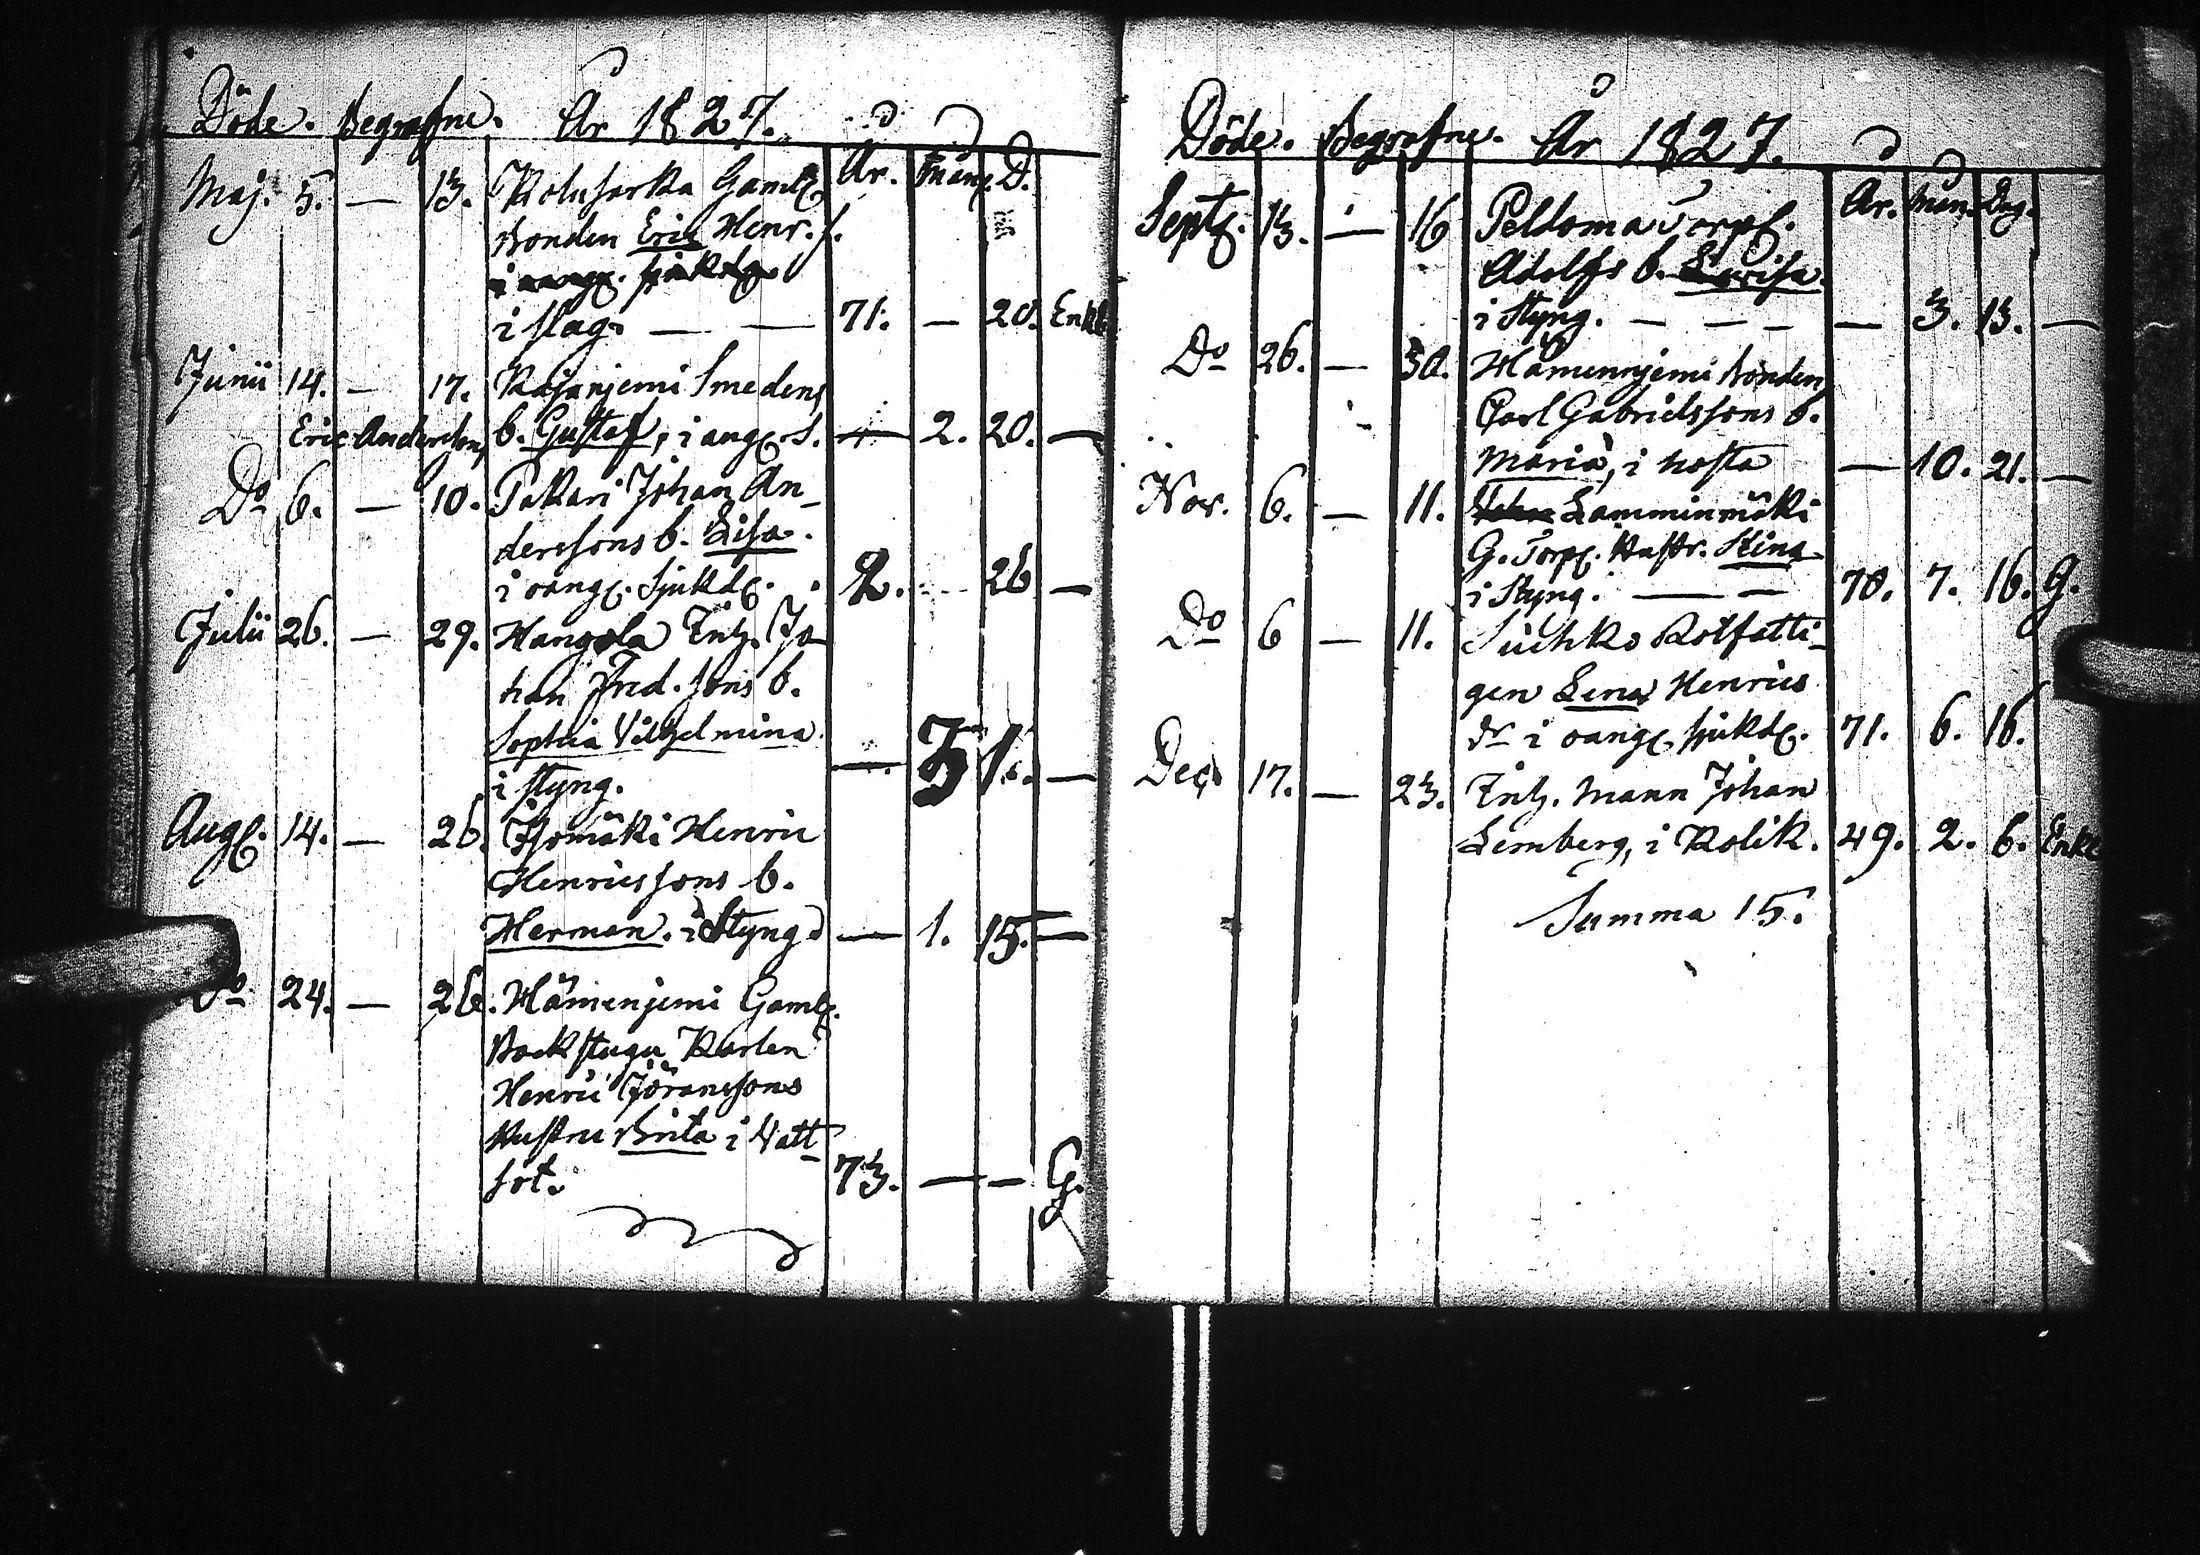 Döde. Begrafne. År 1827.
År. Mån. D.
Maj. 5. — 13. Gaml.
Bonden Eric Henr. s.
i slag. — — 71. — 20. Enkl.
Junii 14. — 17. Smedens
Eric Andersson, b. Gustaf, i ang. s. — 2. 20. —
Do 6. — 10. Pakari Johan An-
derssons b. Lisa.
i oang. sjukd. 2. 26 —
Julii 26. — 29. Hangola Inh. Jo-
han Fred. sons b.
Sophia Vilhelmina
i styng. — 3 1. —
Aug. 14. — 26. Isomäki Henric
Henricssons b.
Herman. i Styng — 1. 15. —
Do 24. — 26. Hämenjemi Gaml.
Backstugu Karlen
Henric Jöranssons
Hustru Brita i Vatt-
sot. 73. — — G.
Döde. Begrafne. År 1827.
År. Mån. Dag.
Sept. 13. — 16 Peldoma Torp.
Adolfs b. Lovisa.
i Styng. — — — — 3. 13. —
Do 26. — 30. Hämennjemi Bonden
Carl Gabrielssons b.
Maria, i hosta — 10. 21. —
Nov. 6. — 11. Lamminmäki
G. Torp. Hustr. Stina
i Styng. — — 70. 7. 16. G.
Do 6 — 11. Rotfatti-
gen Lena Henrics
dr i oang. sjukd. 71. 6. 16.
Dec. 17. — 23. Inh. Mann Johan
Lemberg, i Kolik. 49. 2. 6. Enkl
Summa 15.